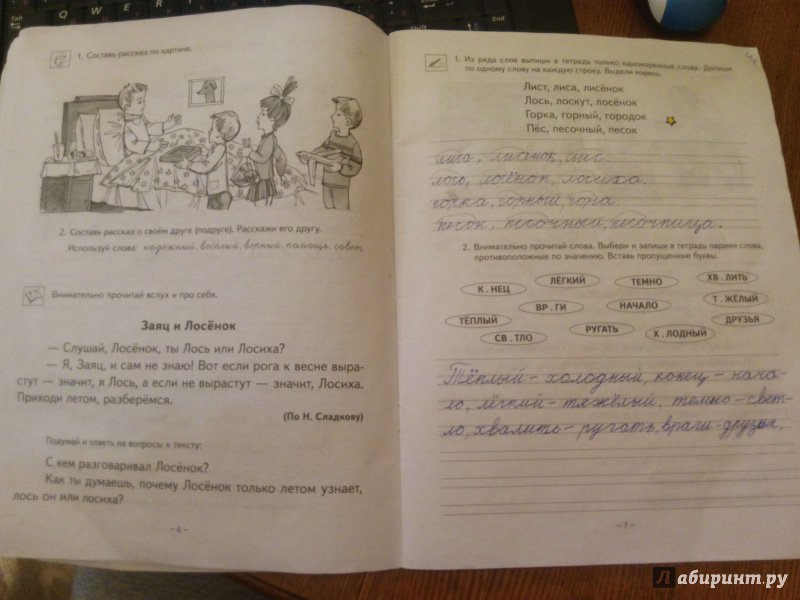 1. Составь рассказ по картине.
2. Составь рассказ о своём друге (подруге). Расскажи его другу.
Используй слова: надежный, весёлый, верный, помощь, совет.
Внимательно прочитай вслух и про себя.
Заяц и Лосёнок
— Слушай, Лосёнок, ты Лось или Лосиха?
— Я, Заяц, и сам не знаю! Вот если рога к весне выра-
стут — значит, я Лось, а если не вырастут — значит, Лосиха.
Приходи летом, разберёмся.
(По Н. Сладкову)
Подумай и ответь на вопросы к тексту:
С кем разговаривал Лосёнок?
Как ты думаешь, почему Лосёнок только летом узнает,
лось он или лосиха?
– 6 –
1. Из ряда слов выпиши в тетрадь только однокоренные слова. Допиши
по одному слову на каждую строку. Выдели корень.
Лист, лиса, лисёнок
Лось, лоскут, лосёнок
Горка, горный, городок
Пёс, песочный, песок
лиса, лисёнок, лис.
лось, лосёнок, лосиха.
горка, горный, гора.
песок, песочный, песочница.
2. Внимательно прочитай слова. Выбери и запиши в тетрадь парами слова,
противоположные по значению. Вставь пропущенные буквы.
К . НЕЦ ЛЁГКИЙ ТЕМНО ХВ . ЛИТЬ
ВР . ГИ НАЧАЛО Т . ЖЁЛЫЙ
ТЁПЛЫЙ СВ . ТЛО РУГАТЬ Х . ЛОДНЫЙ ДРУЗЬЯ
Тёплый – холодный, конец – нача-
ло, лёгкий – тяжёлый, темно – свет-
ло, хвалить – ругать, враги – друзья.
– 7 –
Лабиринт.ру